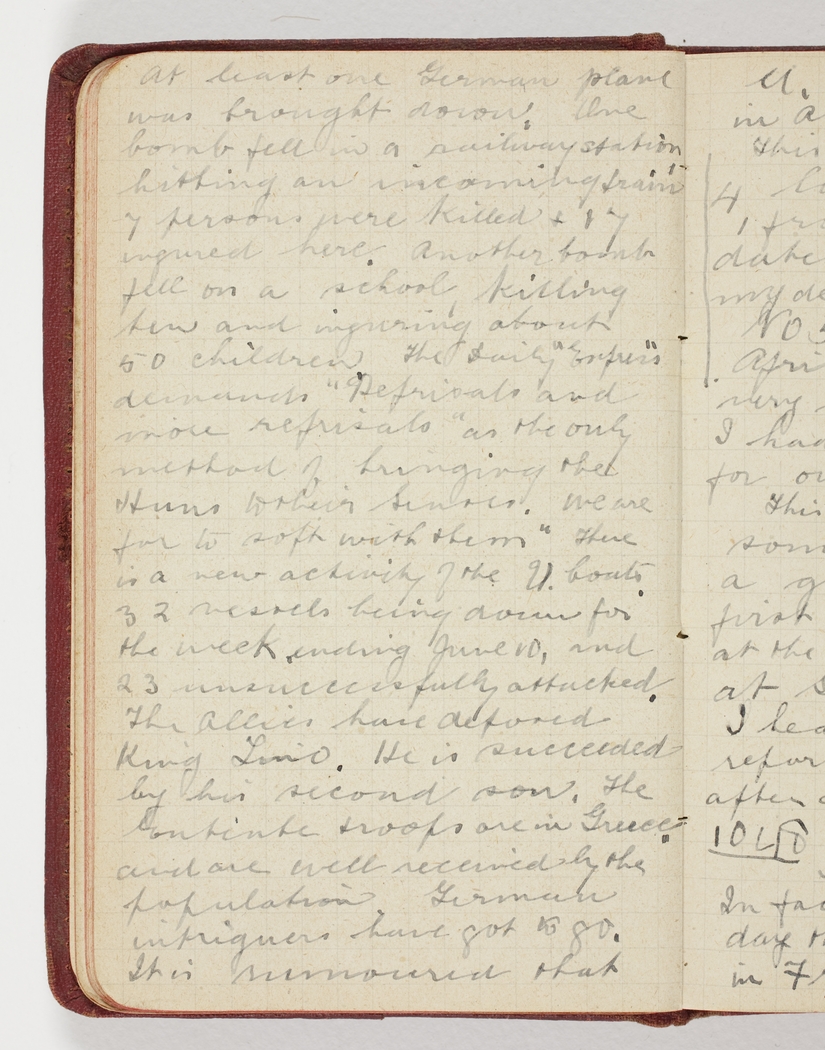 At least one German plane
was brought down. One
bomb fell in a railway station
hitting an incoming train
7 persons were killed & 17
ingured here. Another bomb
fell on a school, killing
ten and inguring about
50 children. The Daily "Express"
demands "Reprisals and
more reprisals" as the only
method of bringing the
Huns to their senses. We are
far to soft with them" There
is a new activity of the U. boats
32 vessels being down for
the week ending June 10, and
23 unsuccessfully attacked.
The Allies have deposed
King Tino. He is succeeded
by his second son. The
Entente troops are in Greece
and are well received by the
population. German
intriguers have got to go.
It is rumoured that
U.
in
This
4
1
date
my
No
Afri
very
I had
for
This
som
a g
first
at the
at
I
repor
after
In
day
in 7